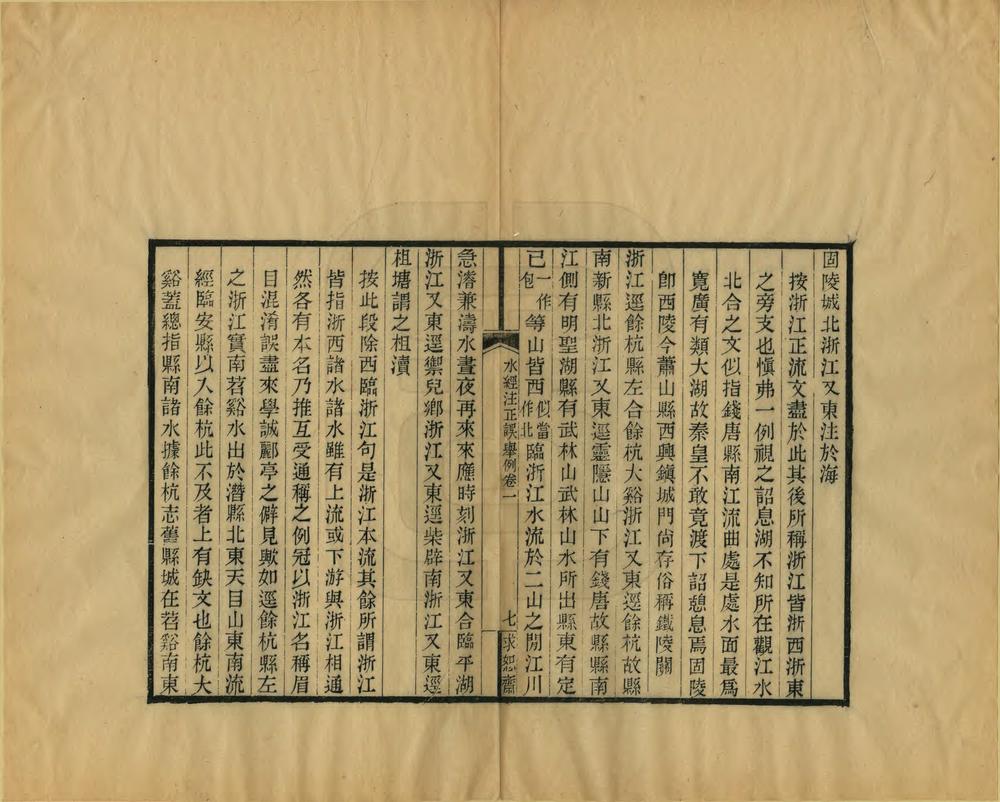 固陵城北浙江又東注於海
按浙江正流文盡於此其後所稱浙江皆浙西浙東
之旁支也愼弗一例視之詔息湖不知所在觀江水
北合之文似指錢唐縣南江流曲處是處水面最爲
寬廣有類大湖故秦皇不敢竟渡下詔憩息焉固陵
卽西陵今蕭山縣西興鎭城門尙存俗稱鐵陵關
浙江逕餘杭縣左合餘杭大谿浙江又東逕餘杭故縣
南新縣北浙江又東逕靈隱山山下有錢唐故縣縣南
江側有明聖湖縣有武林山武林山水所出縣東有定
已一作包等山皆西似當作北臨浙江水流於二山之閒江川
水經注正誤舉例卷一 七 求恕齋
急濬兼濤水晝夜再來來應時刻浙江又東合臨平湖
浙江又東逕禦兒鄉浙江又東逕柴辟南浙江又東逕
柤塘謂之柤瀆
按此段除西臨浙江句是浙江本流其餘所謂浙江
皆指浙西諸水諸水雖有上流或下游與浙江相通
然各有本名乃推互受通稱之例冠以浙江名稱眉
目混淆誤盡來學誠酈亭之僻見歟如逕餘杭縣左
之浙江實南苕谿水出於潛縣北東天目山東南流
經臨安縣以入餘杭此不及者上有缺文也餘杭大
谿蓋總指縣南諸水據餘杭志舊縣城在苕谿南東